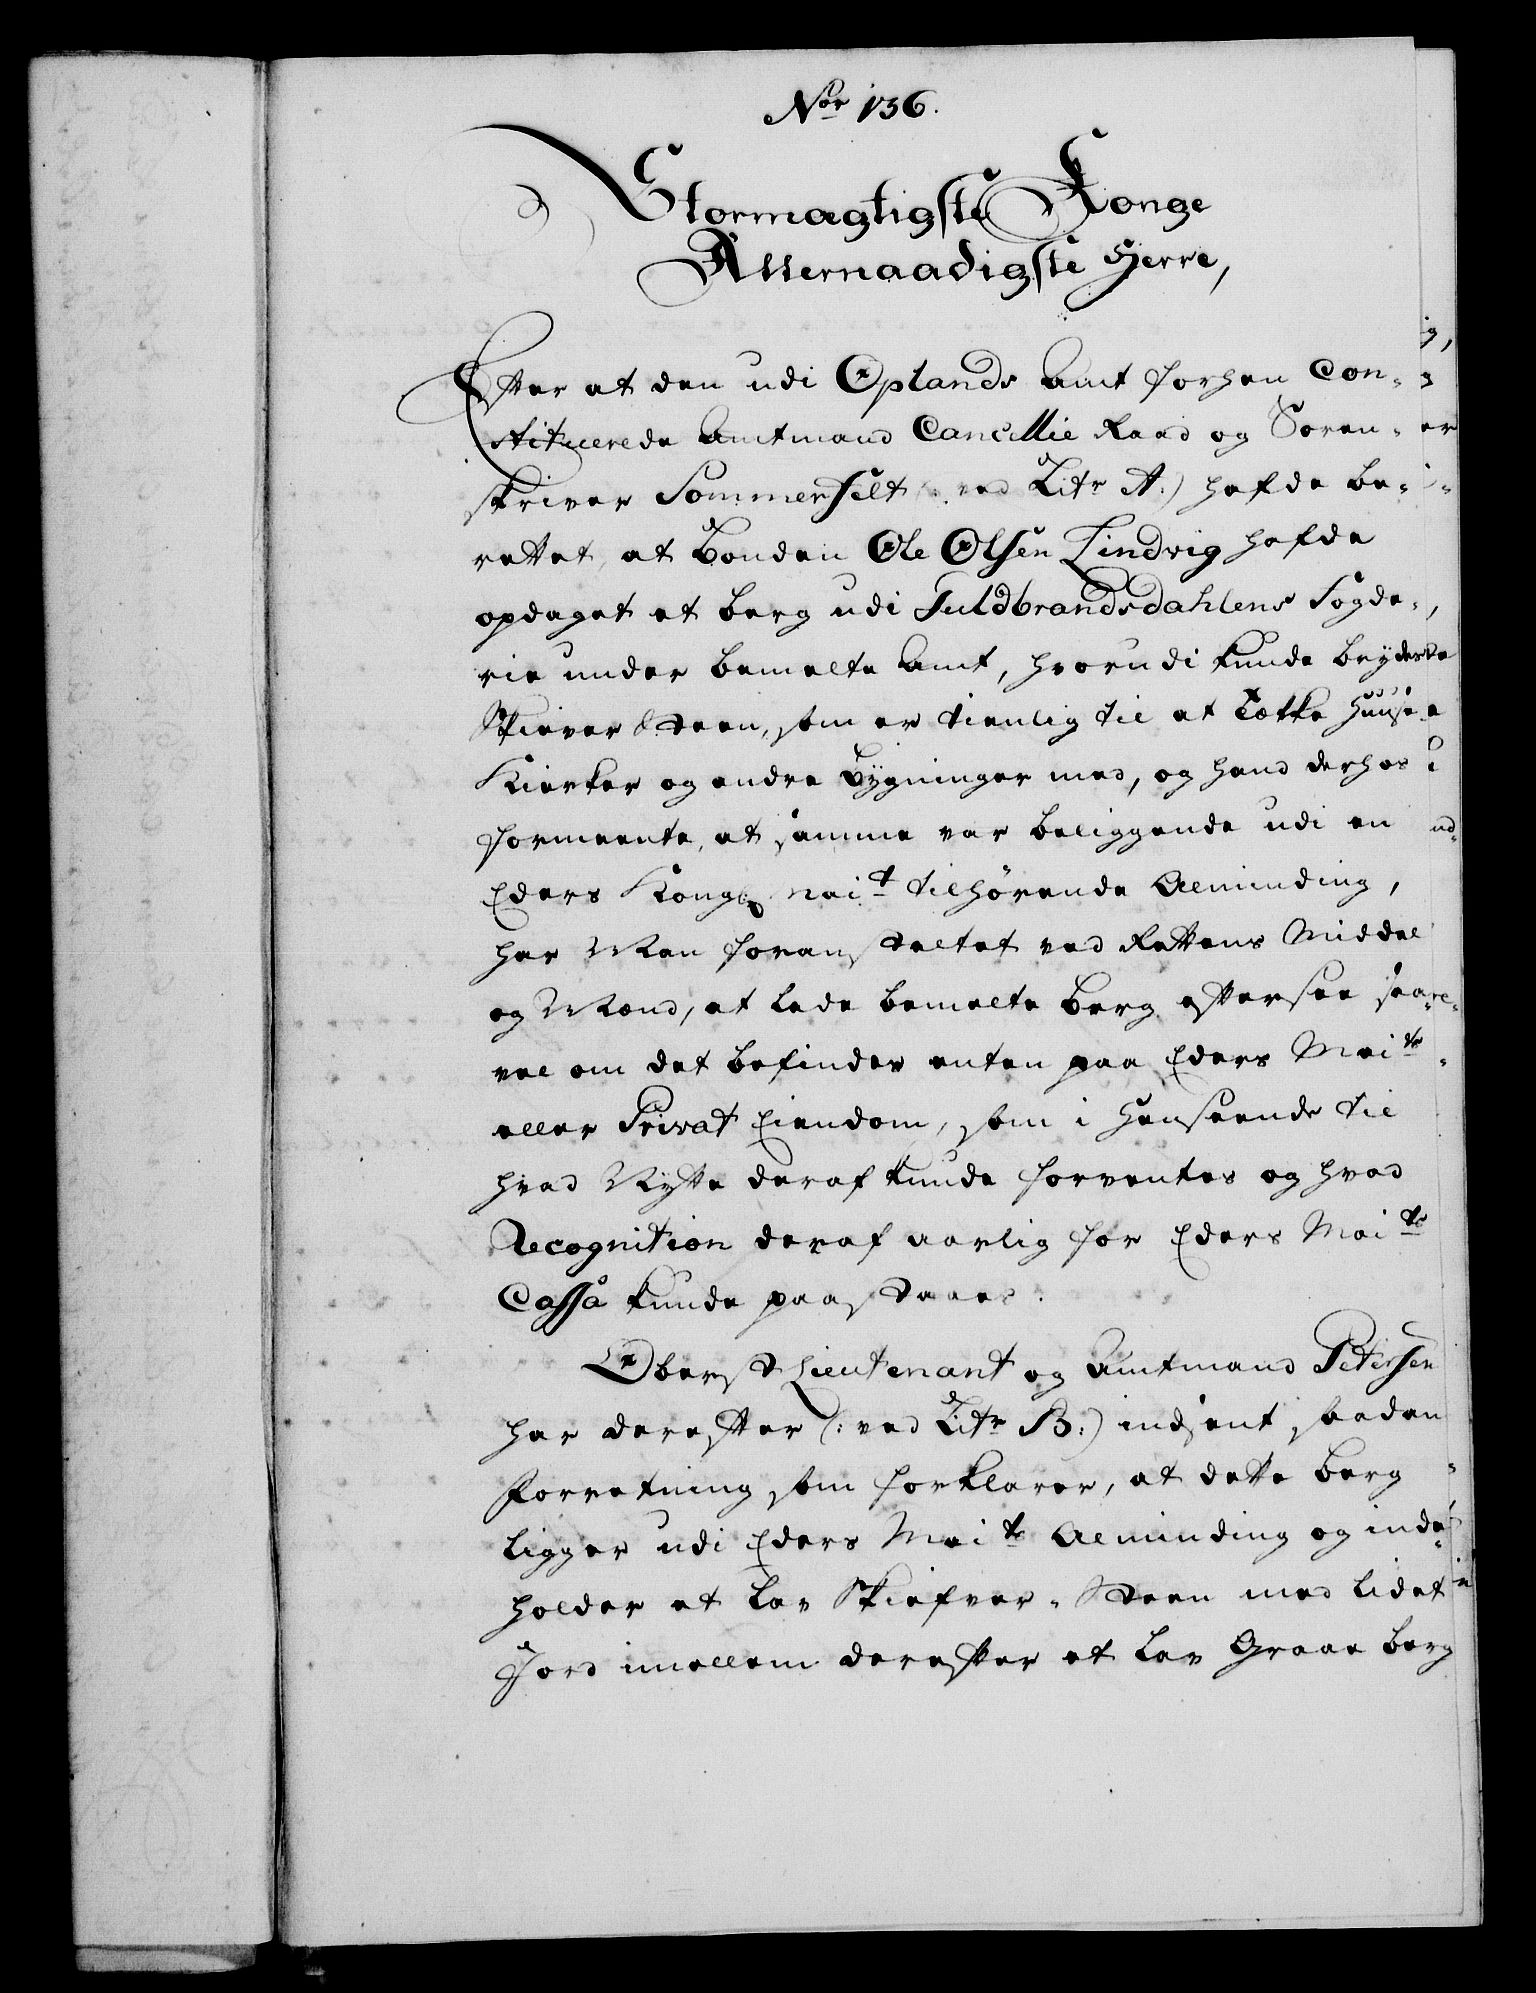 No 136.
Stormægtigste Konge
Allernaadigste Herre,
Efter at den udi Oplands Amt forhen Con-
stituerede Amtmand Cancellie Raad og Soren-
skriver Sommerfelt (: ved Litr A:) hafde be-
rettet, at Bonden Ole Olsen Lindvig hafde
opdaget et berg udi Guldbrandsdahlens Fogde-
rie under bemelte Amt, hvorudi kunde brydes
Skiever Steen, som er tienlig til at Tække Huuse
Kierker og andre Bygninger med, og hand derhos
formeente, at samme var beliggende udi en
Eders Kongl Mait tilhørende Alminding,
har Man foranstaltet ved Rettens Middel
og Mænd, at lade bemelte berg eftersee saa-
vel om det befindes enten paa Eders Maits
eller Privat Eiendom, som i henseende til
hvad Nytte deraf kunde forventes og hvad
Recognition deraf aarlig for Eders Maits
Cassa kunde paastaaes.
Oberst Lieutenant og Amtmand Petersen
har derefter (: ved Litr B:) indsent saadan
Forretning som forklarer, at dette berg
ligger udi Eders Maits Alminding og inde-
holder et Lav Skiefver-Steen med lidet
Jord imellem derefter et Lav Graae berg